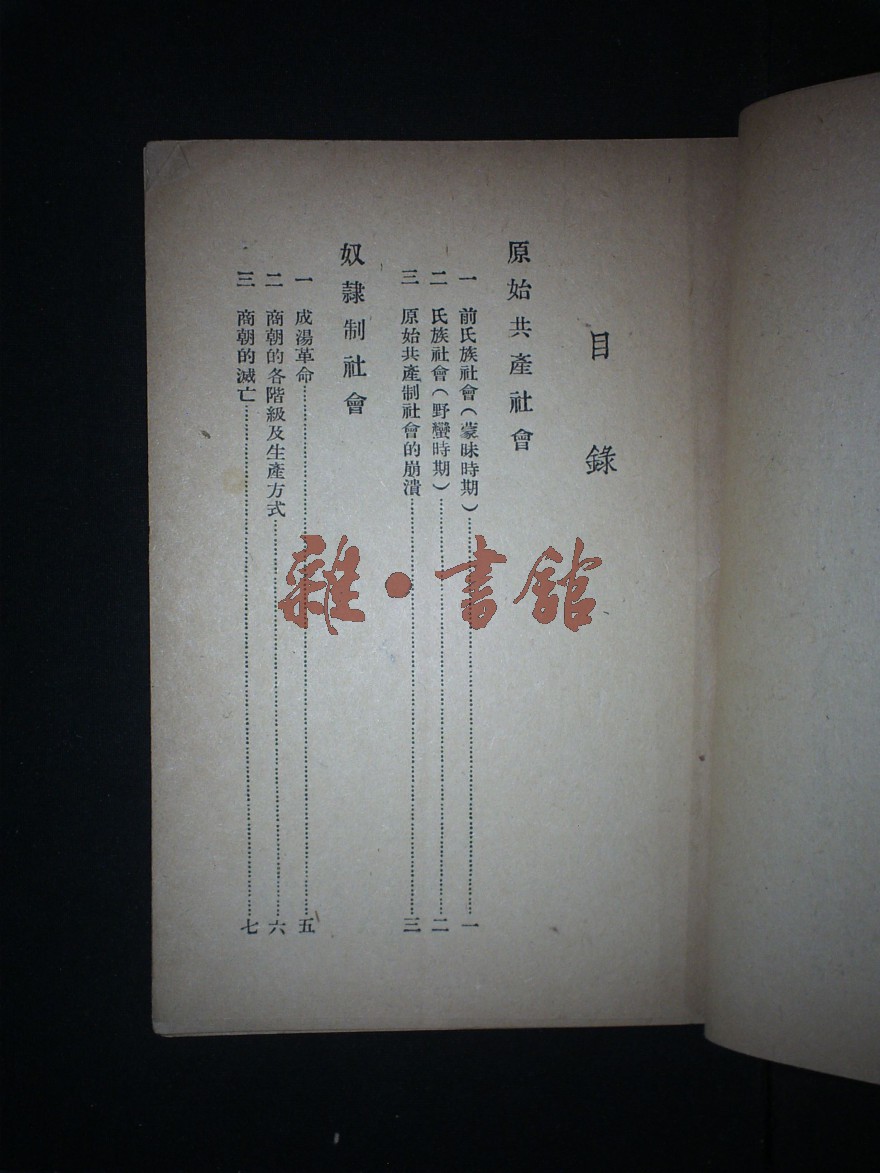 目錄
原始共產社會
一 前氏族社會(蒙昧時期)……一
二 氏族社會(野蠻時期)……二
三 原始共產制社會的崩潰……三
奴隸制社會
一 成湯革命……五
二 商朝的各階級及生產方式……六
三 商朝的滅亡……七
雜·書館